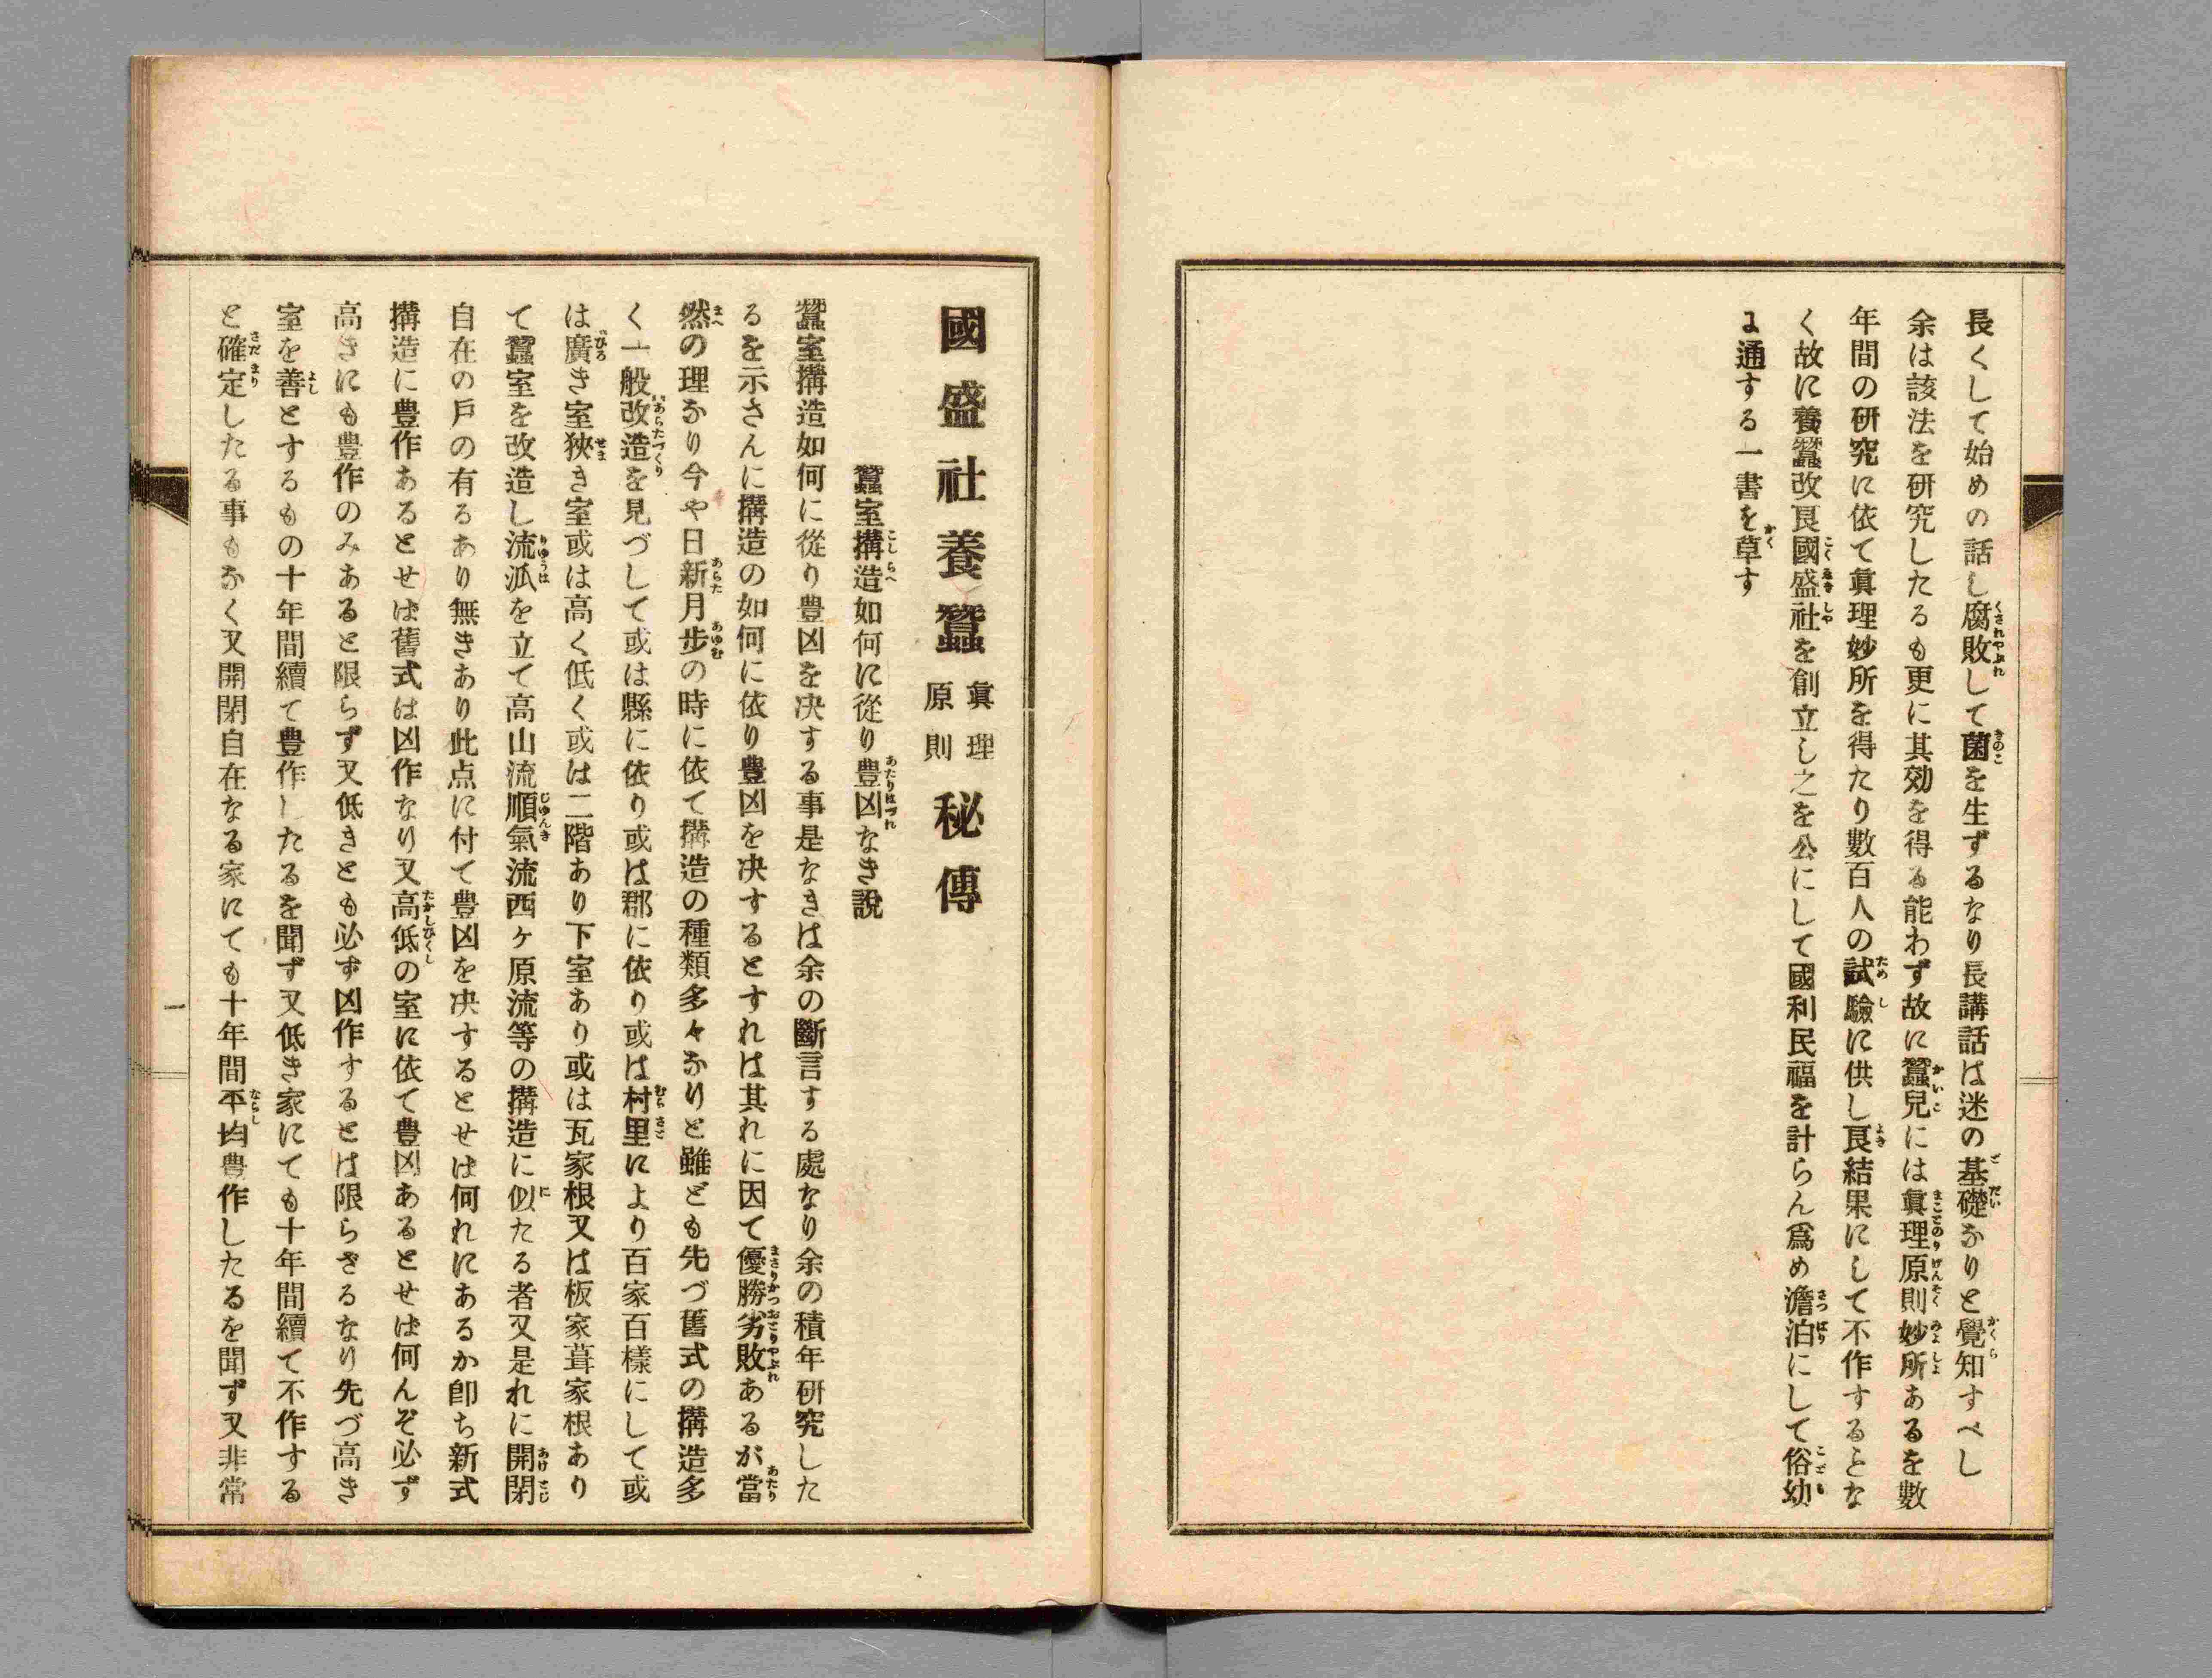 長くして始めの話し腐敗して菌を生ずるなり長講話は迷の基礎なりと覺知すべし
余は該法を研究したるも更に其効を得る能わず故に蠶兒には眞理原則妙所あるを數
年間の研究に依て眞理妙所を得たり數百人の試驗に供し良結果にして不作するとな
く故に養蠶改良國盛社を創立し之を公にして國利民福を計らん爲め澹泊にして俗幼
に通する一書を草す
國盛社養蠶眞理原則秘傳
蠶室搆造如何に從り豊凶なき説
蠶室搆造如何に從り豊凶を决する事是なきは余の斷言する處なり余の積年研究した
るを示さんに搆造の如何に依り豊凶を决するとすれは其れに因て優勝劣敗あるが當
然の理なり今や日新月歩の時に依て搆造の種類多々なりと雖ども先づ舊式の搆造多
く一般改造を見づして或は縣に依り或は郡に依り或は村里により百家百樣にして或
は廣き室狹き室或は高く低く或は二階あり下室あり或は瓦家根又は板家葺家根あり
て蠶室を改造し流派を立て高山流順氣流西ヶ原流等の搆造に似たる者又是れに開閉
自在の戸の有るあり無きあり此点に付て豊凶を决するとせは何れにあるか卽ち新式
搆造に豊作あるとせは舊式は凶作なり又高低の室に依て豊凶あるとせは何んぞ必ず
高きにも豊作のみあると限らず又低きとも必ず凶作するとは限らざるなり先づ高き
室を善とするもの十年間續て豊作したるを聞ず又低き家にても十年間續て不作する
と確定したる事もなく又開閉自在なる家にても十年間平均豊作したるを聞ず又非常
一